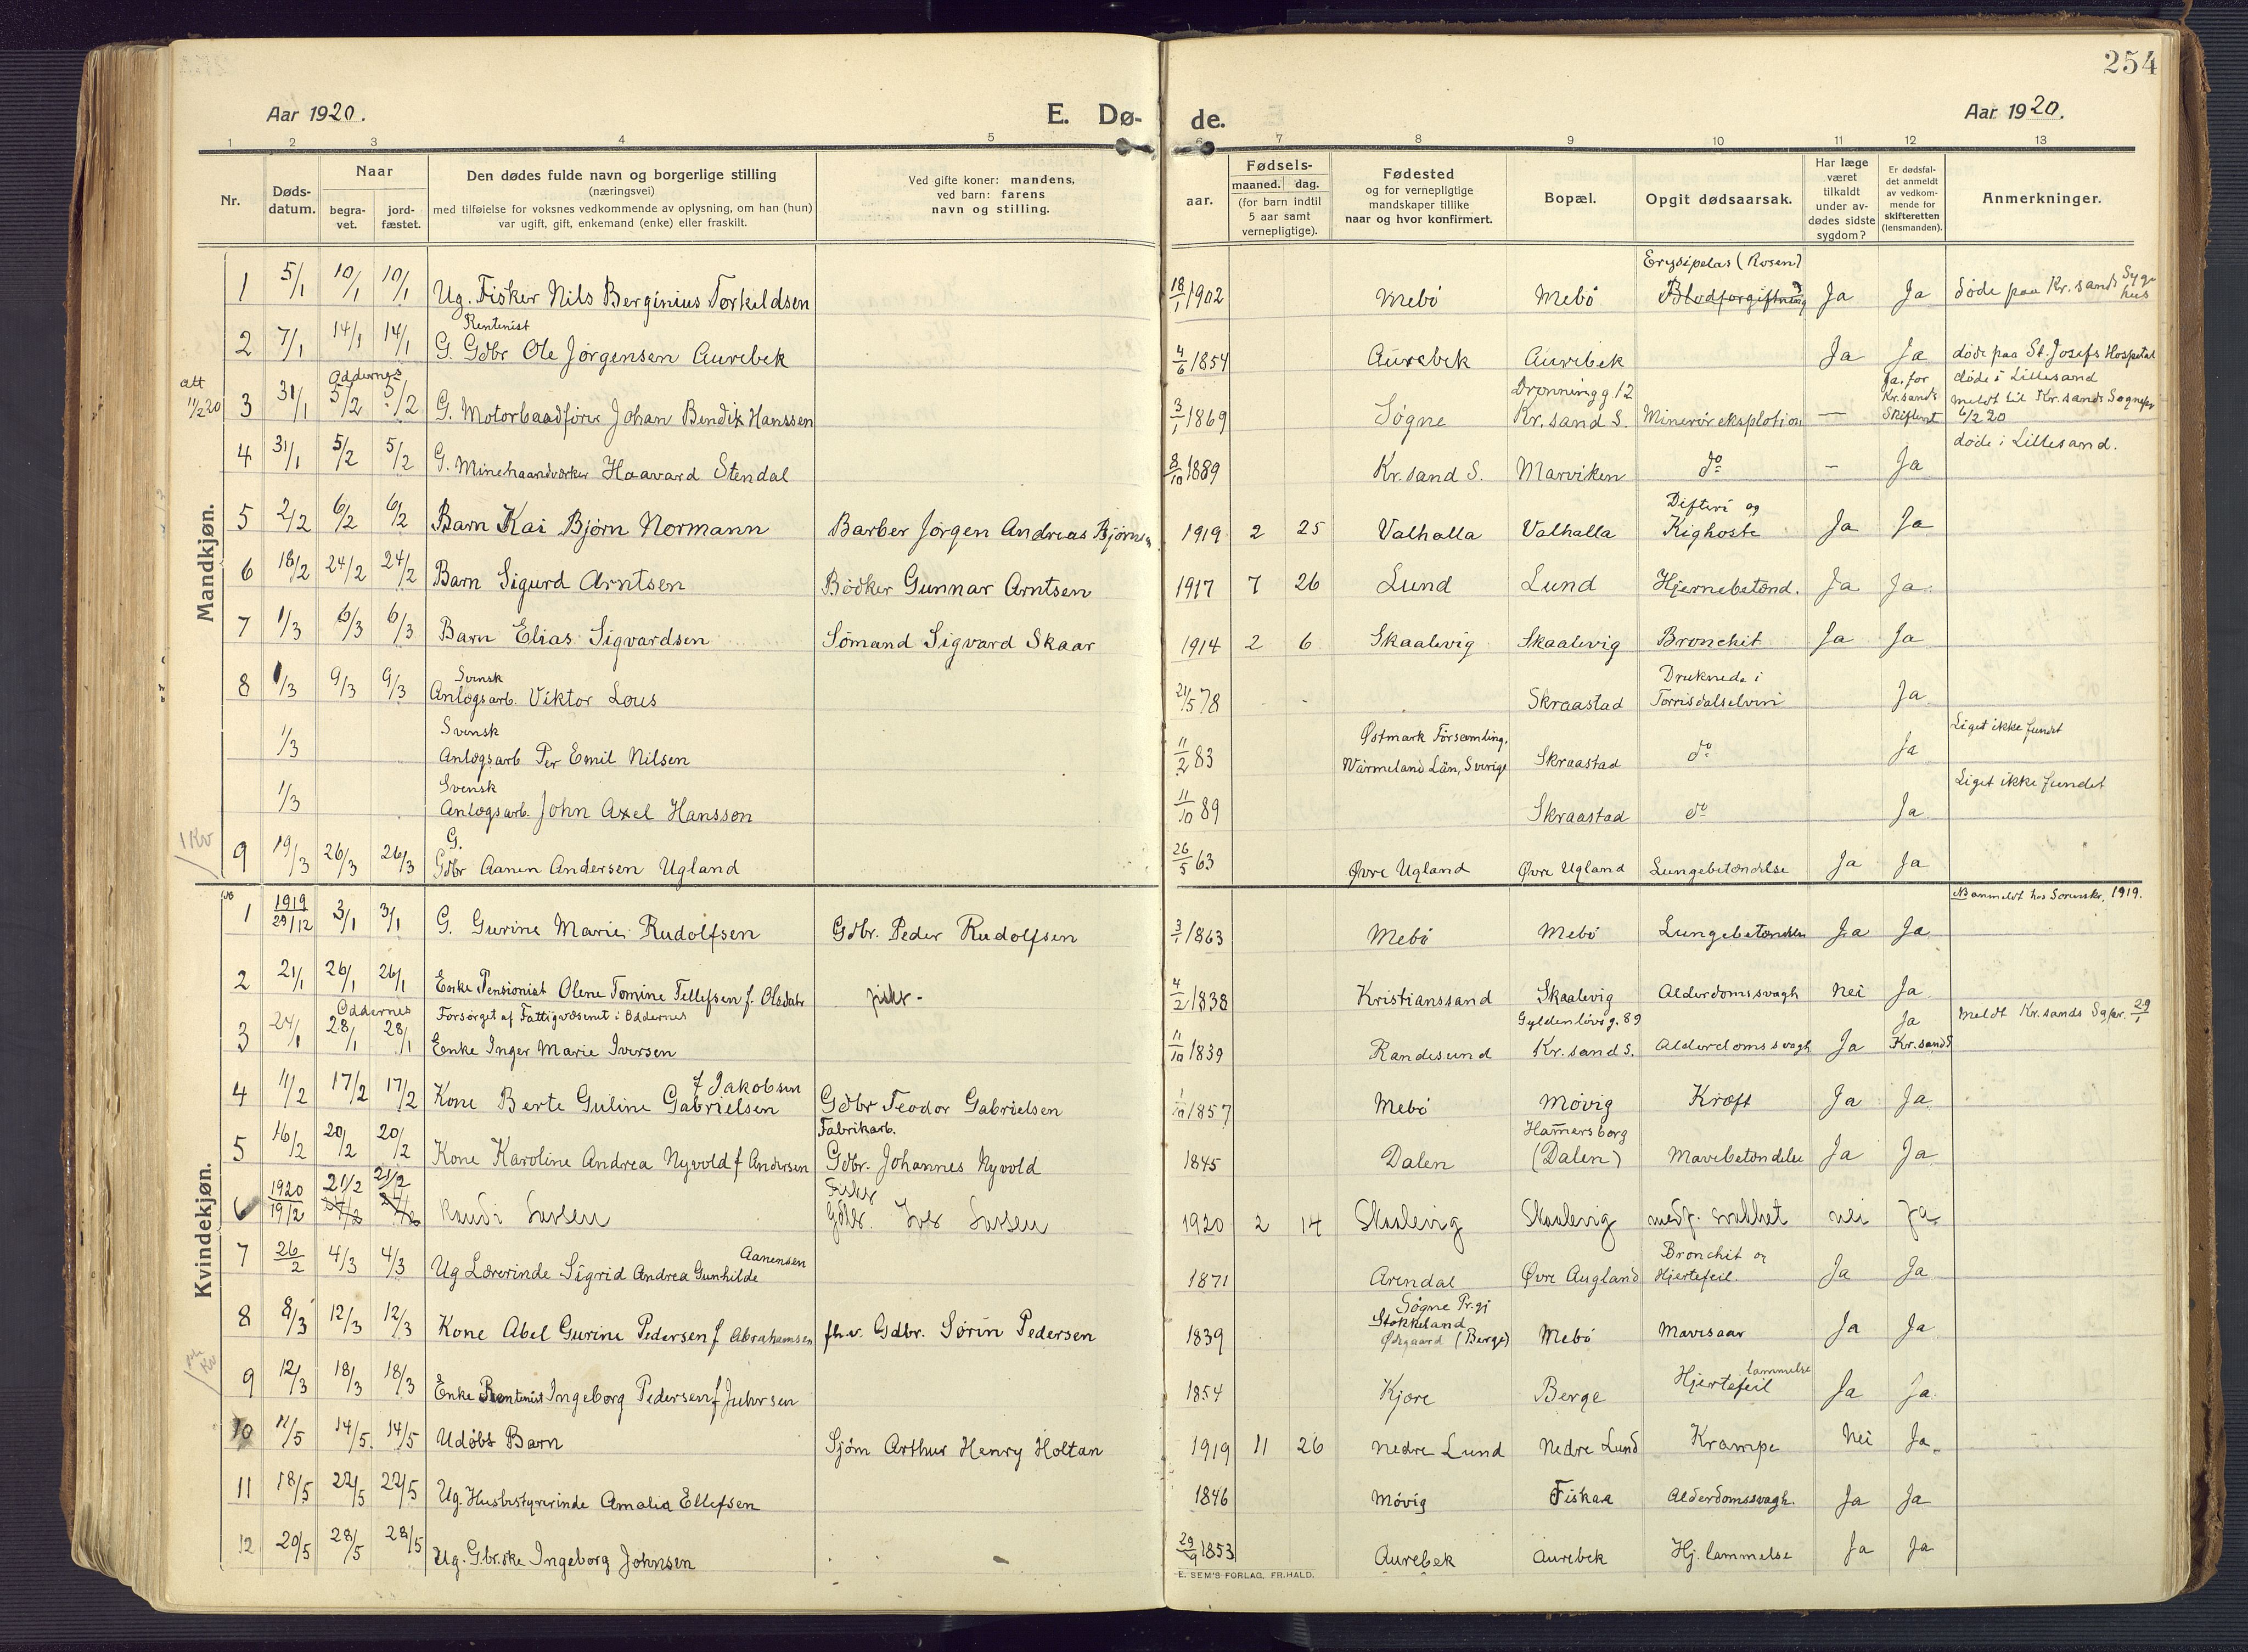 254
Aar 1920.
E. Dø-
de.
Aar 1920.
1 2 3 4 5 6 7 8 9 10 11 12 13
Nr.
Døds-
datum.
Naar
begra-
vet.
jord-
fæstet.
Den dødes fulde navn og borgerlige stilling
(næringsvei)
med tilføielse for voksnes vedkommende av oplysning, om han (hun)
var ugift, gift, enkemand (enke) eller fraskilt.
Ved gifte koner: mandens,
ved barn: farens
navn og stilling.
Fødsels-
aar.
maaned. dag.
(for barn indtil
5 aar samt
vernepligtige).
Fødested
og for vernepligtige
mandskaper tillike
naar og hvor konfirmert.
Bopæl.
Opgit dødsaarsak.
Har læge
været
tilkaldt
under av-
dødes sidste
sygdom?
Er dødsfal-
det anmeldt
av vedkom-
mende for
skifteretten
(lensmanden).
Anmerkninger.
Mandkjøn.
Erysipelas (Rosen)
1 5/1 10/1 10/1 Ug. Fisker Nils Berginius Torkeldsen 18/1 1902 Mebö Mebö Blodforgiftning Ja Ja døde paa Kr.sands Syge
hus
Rentenist
2 7/1 14/1 14/1 G. Gdbr Ole Jørgensen Aurebek 4/6 1854 Aurebek Aurebek Ja Ja døde paa St. Josefs Hospital
att
11/2 20
Oddernes
Dronningg 12 Ja, for døde i Lillesand
3 31/1 5/2 5/2 G. Motorbaadfører Johan Bendix Hanssen 3/1 1869 Søgne Kr.sand S. Minerøreksplotion — Kr.sands Skifteret meldt til Kr.sands Sognepr
6/2 20
4 31/1 5/2 5/2 G. Minehaandværker Haavard Stendal 8/10 1889 Kr.sand S. Marviken do - Ja døde i Lillesand.
Difteri og
5 2/2 6/2 6/2 Barn Kai Bjørn Normann Barber Jørgen Andreas Bjørnsen 1919 2 25 Valhalla Valhalla Kighoste Ja Ja
6 18/2 24/2 24/2 Barn Sigurd Arntsen Bödker Gunnar Arntsen 1917 7 26 Lund Lund Hjernebetænd. Ja Ja
7 1/3 6/3 6/3 Barn Elias Sigvardsen Sömand Sigvard Skaar 1914 2 6 Skaalevig Skaalevig Bronchit Ja Ja
Svensk
Druknede i
8 1/3 9/3 9/3 Anlægsarb. Viktor Lous 21/5 78 Skraastad Torrisdalselven Ja
Svensk
Østmark Församling,
Liget ikke fundet
1/3 Anlægsarb Per Emil Nilsen 11/2 83 Wärmeland Län, Sverige Skraastad do Ja
Svensk
Liget ikke fundet
1/3 Anlægsarb. John Axel Hansson 11/10 89 Skraastad do Ja
1 Kv
G.
9 19/3 26/3 26/3 Gdbr Aanen Andersen Ugland 26/5 63 Øvre Ugland Øvre Ugland Lungebetændelse Ja Ja
Kvindekjøn.
NB
NB anmeldt hos Sorenskr. 1919.
1 1919 29/12 3/1 3/1 G. Gurine Marie Rudolfsen Gdbr. Peder Rudolfsen 3/1 1863 Mebö Mebö Lungebetændelse Ja Ja
2 21/1 26/1 26/1 Enke Pensionist Olene Tomine Tellefsen f. Olsdatr fisker - 4/2 1838 Kristianssand Skaalevig Alderdomssvagh Nei Ja
Oddernes
Forsørget af Fattigvæsenet i Oddernes
Gyldenløvsg. 89
Ja
meldt Kr.sands Sgpr. 29/1
3 24/1 28/1 28/1 Enke Inger Marie Iversen 11/10 1839 Randesund Kr.sand S. Alderdomssvagh Ja Kr.sands
f Jakobsen
4 11/2 17/2 17/2 Kone Berte Guline Gabrielsen Gdbr Teodor Gabrielsen 1/10 1857 Mebö Møvig Kræft Ja Ja
Fabrikarb.
Hamersborg
5 16/2 20/2 20/2 Kone Karoline Andrea Nyvold f Andersen Gdbr. Johannes Nyvold 1845 Dalen (Dalen) Mavebetændelse Ja Ja
21/2 21/2
Fisker
6 1920 19/2 Randi Larsen Gdbr. Iver Larsen 1920 2 14 Skaalevig Skaalevig medf. svakhet nei Ja.
Aanensen
Bronchit og
7 26/2 4/3 4/3 Ug Lærerinde Sigrid Andrea Gunhilde 1871 Arendal Øvre Augland Hjertefeil. Ja Ja
Søgne Pr.gj
Stokkeland
8 8/3 12/3 12/3 Kone Abel Gurine Pedersen f Abrahamsen fh.v. Gdbr. Sörin Pedersen 1839 Ødegaard (Berge) Mebö Mavesaar Ja Ja
Kv
lammelse
9 12/3 18/3 18/3 Enke Rentenist Ingeborg Pedersen f 1854 Kjøre Berge Hjertefeil Ja Ja
10 11/5 14/5 14/5 Udöbt Barn Sjöm Arthur Henry Holtan 1919 11 26 Nedre Lund Nedre Lund Krampe Nei Ja.
11 18/5 22/5 22/5 Ug. Husbestyrerinde Amalia Ellefsen 1846 Møvig Fiskaa Alderdomssvagh. Ja Ja
12 20/5 28/5 28/5 Ug. Gbr.ske Ingeborg Johnsen 29/9 1853 Aurebek Aurebek Hj. lammelse Ja Ja
E. SEM'S FORLAG, FR.HALD.